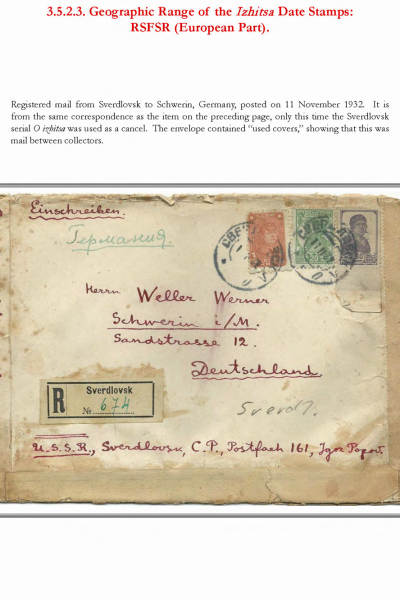 3.5.2.3. Geographic Range of the Izhitsa Date Stamps:
RSFSR (European Part).
Registered mail from Sverdlovsk to Schwerin, Germany, posted on 11 November 1932. It is
from the same correspondence as the item on the preceding page, only this time the Sverdlovsk
serial O izhitsa was used as a cancel. The envelope contained “used covers,” showing that this was
mail between collectors.
Einschreiben.
Германия.
Herrn Weller Werner
Schwerin i/M.
Sandstrasse 12.
Deutschland
R
Sverdlovsk
№ 674
Sverdl.
U.S.S.R., Sverdlovsk, C.P., Postfach 161, Igor Popov.